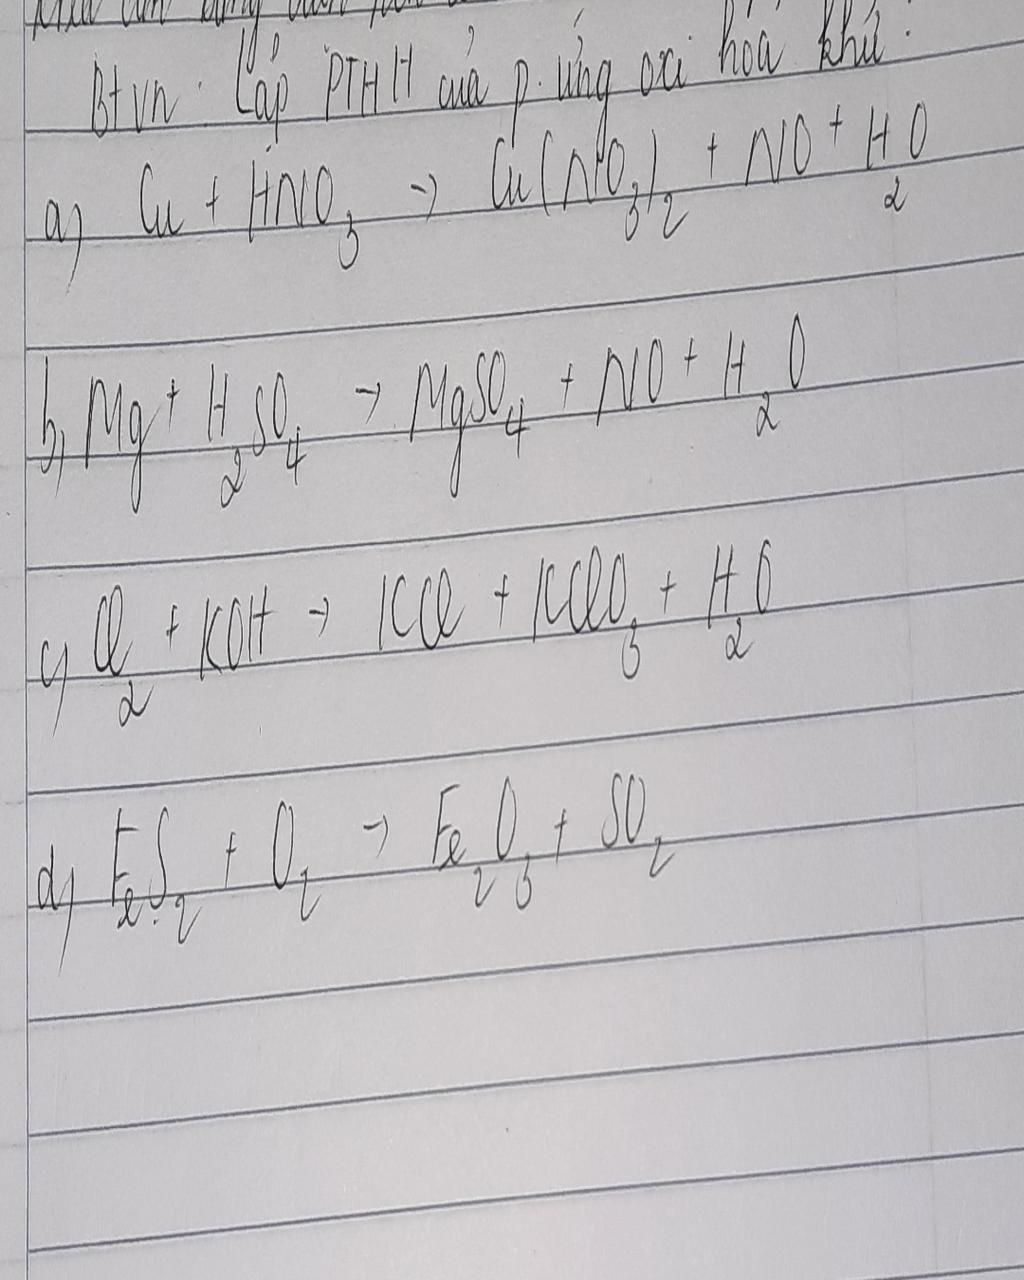 Btvn: Lập PTHH của p.ứng oxi hóa khử:
a) Cu + HNO₃ → Cu(NO₃)₂ + NO + H₂O
b) Mg + H₂SO₄ → MgSO₄ + NO + H₂O
c) Cl₂ + KOH → KCl + KClO₃ + H₂O
d) FeS₂ + O₂ → Fe₂O₃ + SO₂